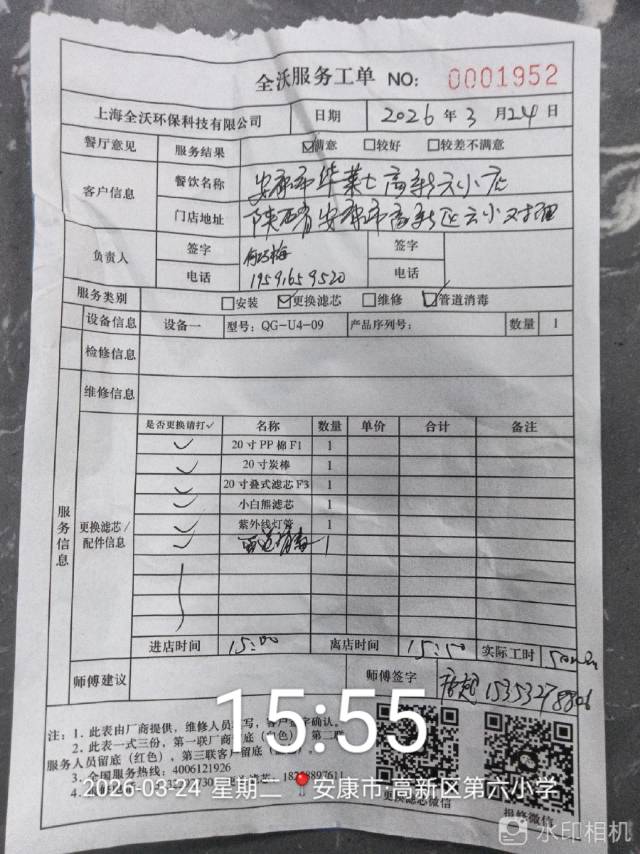 全沃服务工单 NO: 0001952
上海全沃环保科技有限公司 日期 2026 年 3 月 24 日
餐厅意见 服务结果 ☑满意 □较好 □较差不满意
客户信息 餐饮名称 安康市华莱士高新六小店
门店地址 陕西省安康市高新区六小对面
负责人 签字 签字
电话 19591659520 电话
服务类别 □安装 ☑更换滤芯 □维修 ☑管道消毒
设备信息 设备一 型号: QG-U4-09 产品序列号: 数量 1
检修信息
维修信息
服务信息
更换滤芯/配件信息
是否更换请打✓ 名称 数量 单价 合计 备注
✓ 20寸PP棉F1 1
✓ 20寸炭棒 1
✓ 20寸叠式滤芯F3 1
✓ 小白熊滤芯 1
✓ 紫外线灯管 1
✓ 管道消毒 1
进店时间 15:00 离店时间 15:50 实际工时 50min
师傅建议 师傅签字
注: 1、此表由厂商提供，维修人员填写，客户签字确认。
2、此表一式三份，第一联厂商 (白色)，第二联
服务人员留底（红色），第三联客户留底
3、全国服务热线: 4006121926
4、
更换滤芯微信
报修微信
15:55
2026-03-24 星期二 安康市·高新区第六小学
水印相机